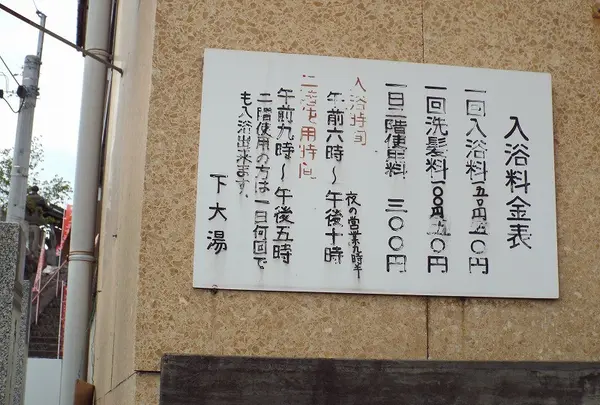 入浴料金表
一回入浴料
一回洗髪料
一日二階使用料 三〇〇円
入浴時間
午前六時〜午後十時
夜の営業九時半
二階使用時間
午前九時〜午後五時
二階使用の方は一日何回で
も入浴出来ます。
下大湯